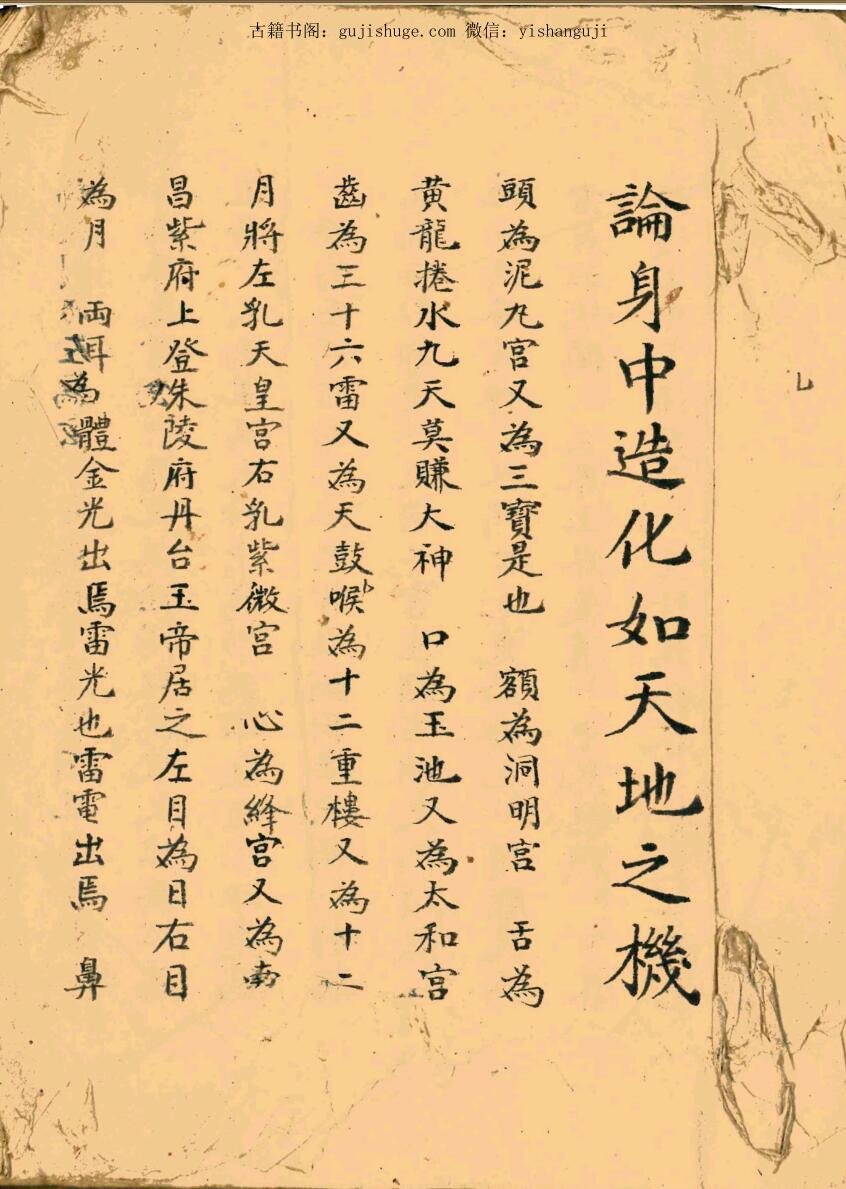 古籍书阁：gujishuge.com 微信：yishanguji
論身中造化如天地之機
頭為泥丸宫又為三寶是也 額為洞明宫 舌為
黄龍捲水九天莫賺大神 口為玉池又為太和宫
齒為三十六雷又為天鼓喉為十二重樓又為十二
月將左乳天皇宫右乳紫微宫 心為絳宫又為南
昌紫府上登朱陵府丹台玉帝居之左目為日右目
為月 両耳為體金光出焉雷光也雷電出焉 鼻